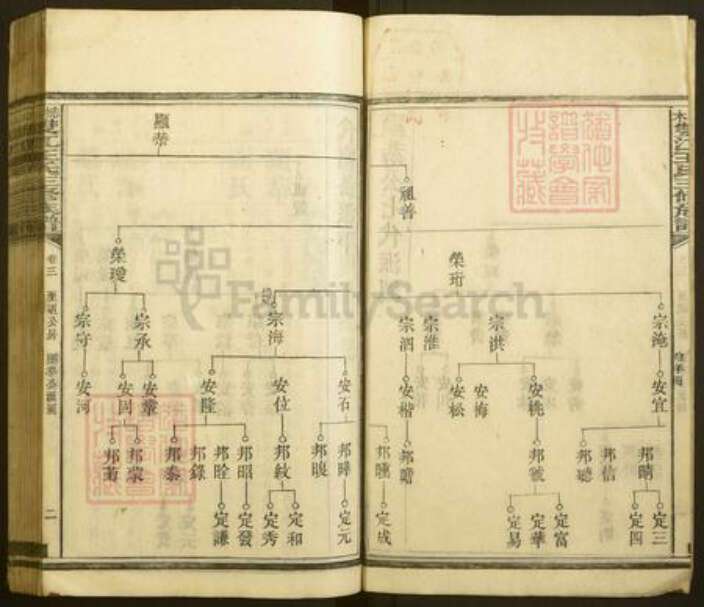 祖善
榮珩
宗淹
宗洪
宗淮
宗泗
安宜
安桃
安梅
安松
安楷
邦睛
邦信
邦聽
邦號
邦瞻
定三
定四
定富
定華
定易
定成
顯榮
榮瓊
宗海
宗承
宗守
安石
安位
安隆
安華
安固
安河
邦暐
邦晙
邦紋
邦昭
邦詮
邦錄
邦泰
邦崇
邦菊
定元
定和
定秀
定發
定謙
卷三
二
FamilySearch